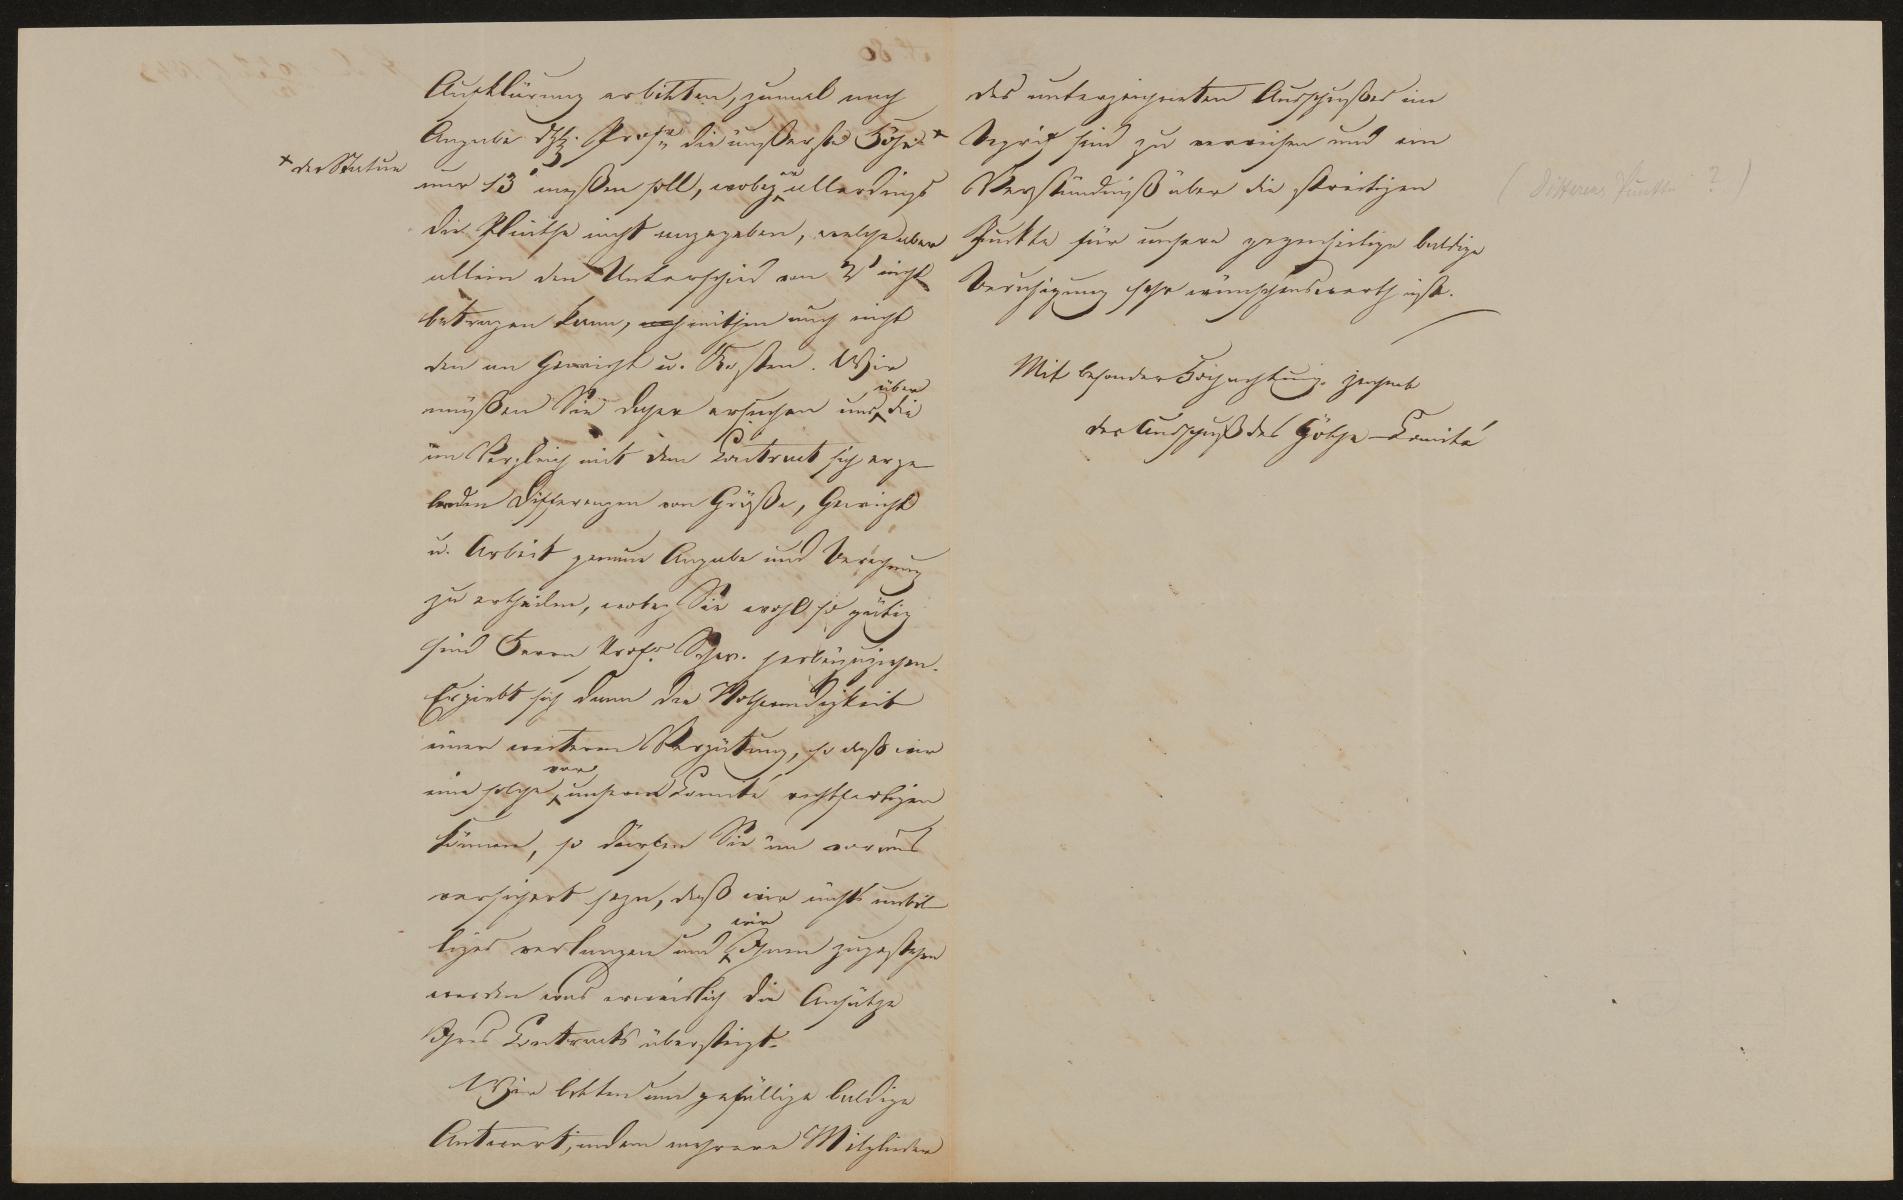 Aufklärung erbitten, zumal nach
Angabe Prof: die äußerste Höhe ×
× der Statue
nur 13' meßen soll, wobey er allerdings
die Plinthe nicht angegeben, welche aber
allein den Unterschied von 2' nicht
betragen kann, mithin auch nicht
den an Gewicht u. Kosten. Wir
müßen Sie daher ersuchen uns über die
im Vergleich mit dem Contract sich erge
benden Differenzen von Größe, Gewicht
u. Arbeit genaue Angabe und Berechnung
zu ertheilen, wobey Sie wohl so gütig
sind Herrn Prof: Schw. herbeizuziehen.
Ergiebt sich dann die Nothwendigkeit
einer weiteren Vergütung, so daß wir
eine solche vor unserem Comité rechtfertigen
können, so dürfen Sie im voraus
versichert seyn, daß wir nichts unbil-
liges verlangen und wir Ihnen zugestehen
werden was erweislich die Ansätze
Ihres Contracts übersteigt.
Wir bitten um gefällige baldige
Antwort, indem mehrere Mitglieder
des unterzeichneten Ausschußes im
Begrif sind zu verreisen und ein
Verständniß über die streitigen
Punkte für unsere gegenseitige baldige
Beruhigung sehr wünschenswerth ist.
( Differenz Punkte ? )
Mit besonder Hochachtung
der Ausschuß des Göthe-Comité